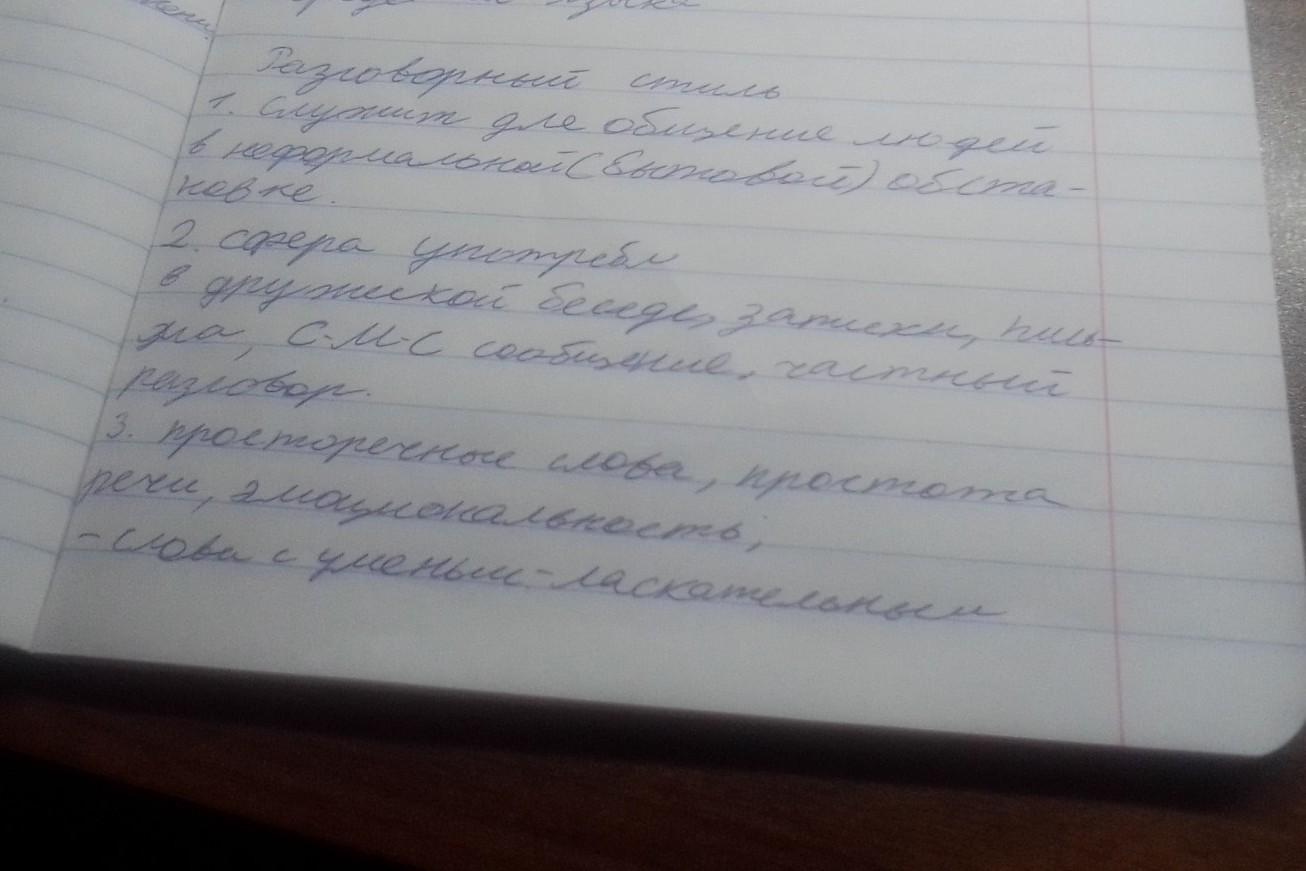 языка
Разговорный стиль
1. служит для общение людей
в неформальной (бытовой) обста-
новке.
2. сфера употребл
в дружеской беседе, записки, пись-
ма, С-М-С сообщение, частный
разговор.
3. просторечные слова, простота
речи, эмоциональность,
- слова с уменьш-ласкательным